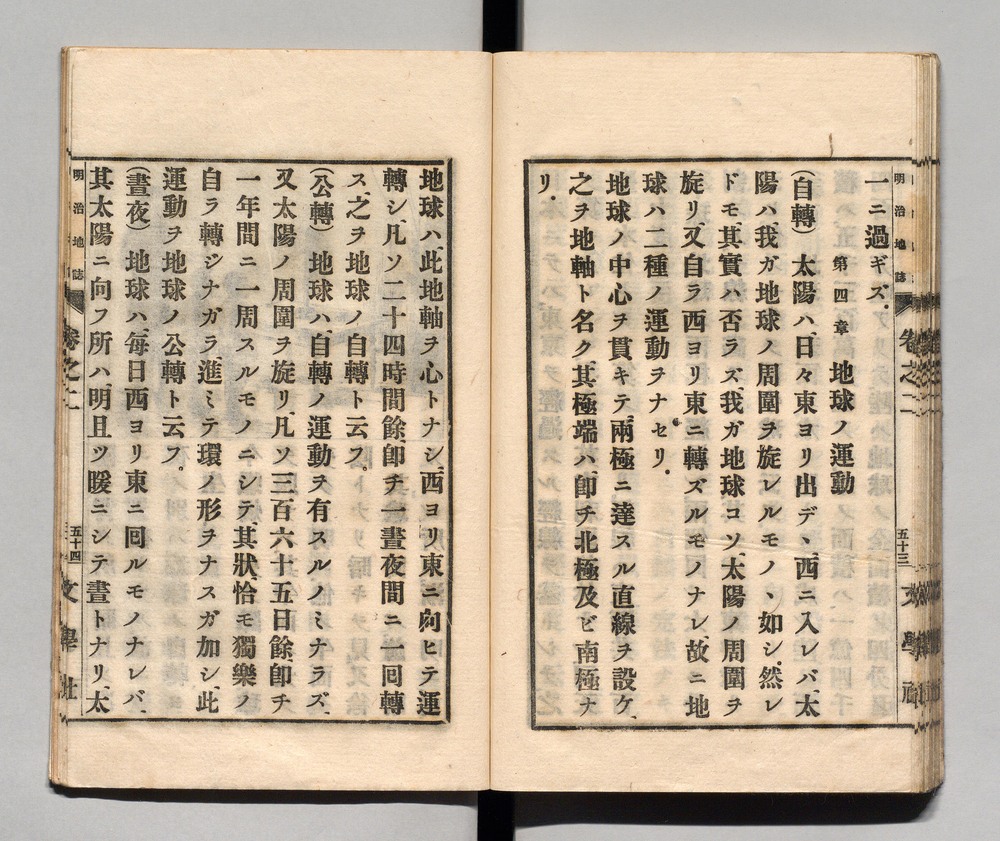 明治地誌 卷之二 五十三 文學社
一ニ過ギズ.
第四章 地球ノ運動
(自轉) 太陽ハ、日々東ヨリ出デヽ、西ニ入レバ、太
陽ハ我ガ地球ノ周圍ヲ旋レルモノヽ如シ.然レ
ドモ、其實ハ否ラズ、我ガ地球コソ、太陽ノ周圍ヲ
旋リ、又自ラ西ヨリ東ニ轉ズルモノナレ、故ニ地
球ハ二種ノ運動ヲナセリ.
地球ノ中心ヲ貫キテ、兩極ニ達スル直線ヲ設ケ、
之ヲ地軸ト名ク、其極端ハ、卽チ北極及ビ南極ナ
リ.
地球ハ、此地軸ヲ心トナシ、西ヨリ、東ニ向ヒテ運
轉シ、凡ソ二十四時間餘卽チ一晝夜間ニ一回轉
ス、之ヲ地球ノ自轉ト云フ.
(公轉) 地球ハ、自轉ノ運動ヲ有スルノミナラズ、
又太陽ノ周圍ヲ旋リ、凡ソ三百六十五日餘、卽チ
一年間ニ一周スルモノニシテ、其狀、恰モ獨樂ノ
自ラ轉ジナガラ、進ミテ環ノ形ヲナスガ加シ、此
運動ヲ地球ノ公轉ト云フ.
(晝夜) 地球ハ、每日西ヨリ東ニ回ルモノナレバ、
其太陽ニ向フ所ハ、明且ツ暖ニシテ晝トナリ、太
明治地誌 卷之二 五十四 文學社